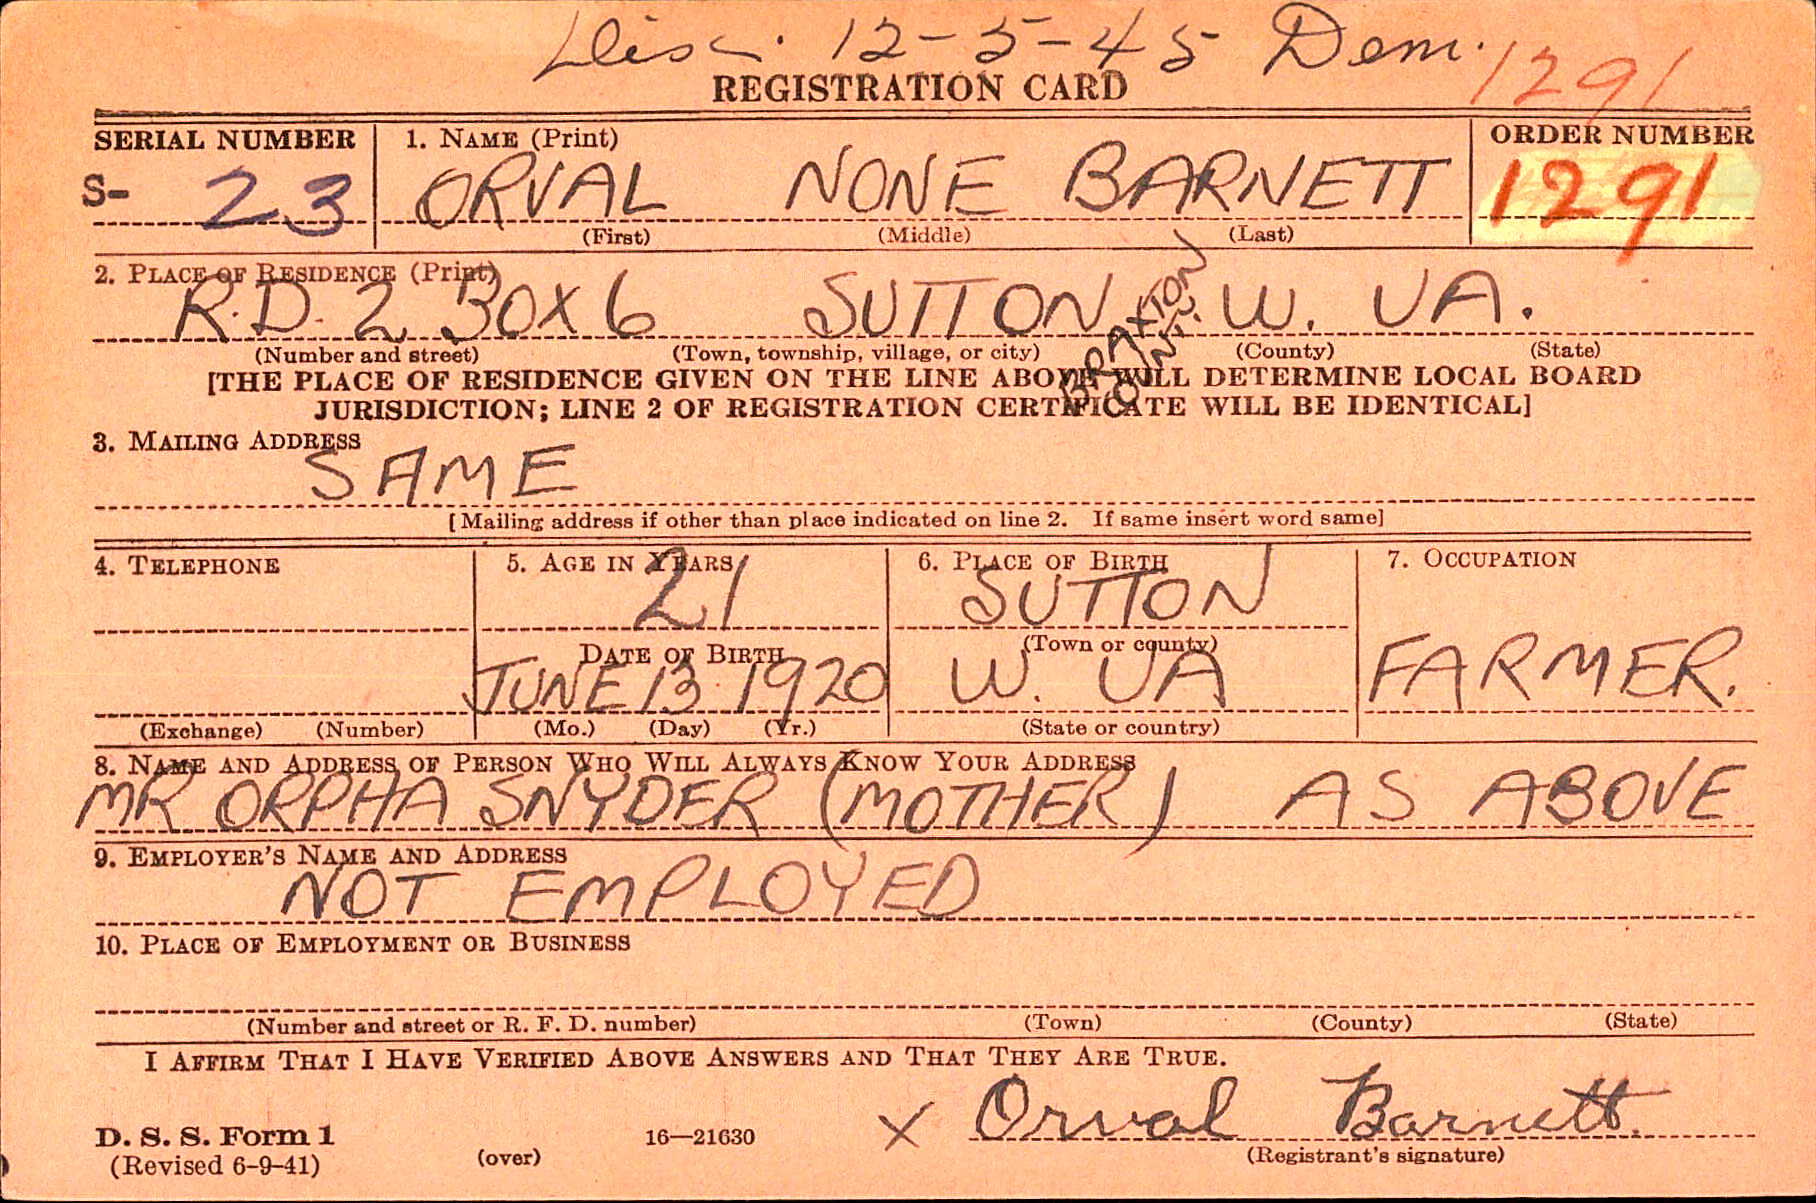 Disc. 12-5-45 Dem.
1291
REGISTRATION CARD
SERIAL NUMBER
1. NAME (Print)
ORDER NUMBER
S- 23
ORVAL NONE BARNETT
1291
(First) (Middle) (Last)
2. PLACE OF RESIDENCE (Print)
R.D. 2 BOX 6 SUTTON BRAXTON W. VA.
(Number and street) (Town, township, village, or city) (County) (State)
[THE PLACE OF RESIDENCE GIVEN ON THE LINE ABOVE WILL DETERMINE LOCAL BOARD
JURISDICTION; LINE 2 OF REGISTRATION CERTIFICATE WILL BE IDENTICAL]
3. MAILING ADDRESS
SAME
[Mailing address if other than place indicated on line 2. If same insert word same]
4. TELEPHONE
5. AGE IN YEARS
6. PLACE OF BIRTH
7. OCCUPATION
21
SUTTON
DATE OF BIRTH
(Town or county)
JUNE 13 1920
W. VA
FARMER.
(Exchange) (Number) (Mo.) (Day) (Yr.) (State or country)
8. NAME AND ADDRESS OF PERSON WHO WILL ALWAYS KNOW YOUR ADDRESS
MR ORPHA SNYDER (MOTHER) AS ABOVE
9. EMPLOYER'S NAME AND ADDRESS
NOT EMPLOYED
10. PLACE OF EMPLOYMENT OR BUSINESS
(Number and street or R. F. D. number) (Town) (County) (State)
I AFFIRM THAT I HAVE VERIFIED ABOVE ANSWERS AND THAT THEY ARE TRUE.
X Orval Barnett.
D. S. S. Form 1
(Revised 6-9-41)
(over)
16—21630
(Registrant's signature)